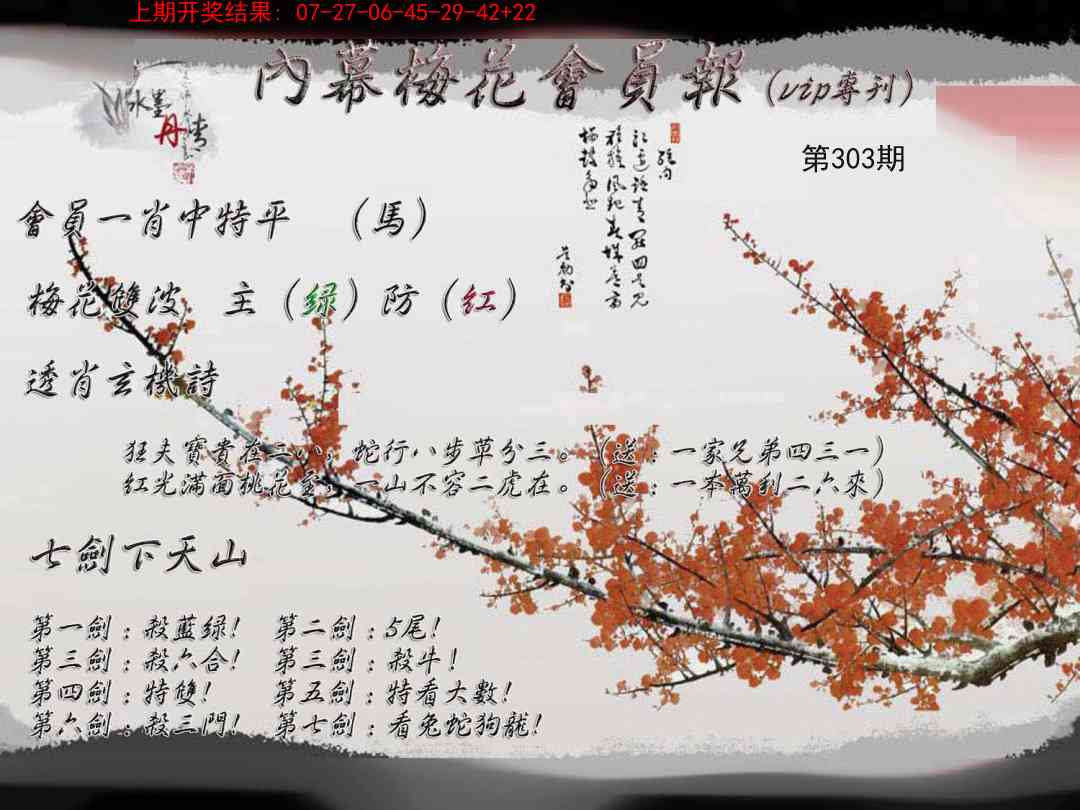 上期开奖结果: 07-27-06-45-29-42+22
內幕梅花會員報(vip專刊)
水墨
丹青
第303期
會員一肖中特平 (馬)
梅花雙波 主(绿)防(红)
透肖玄機詩
狂夫寶貴在二八,蛇行八步草分三。(送:一家兄弟四三一)
红光滿面桃花,一山不容二虎在。(送:一本萬利二六來)
七劍下天山
第一劍:殺藍绿! 第二劍:5尾!
第三劍:殺六合! 第三劍:殺牛!
第四劍:特雙! 第五劍:特看大數!
第六劍:殺三門! 第七劍:看兔蛇狗龍!